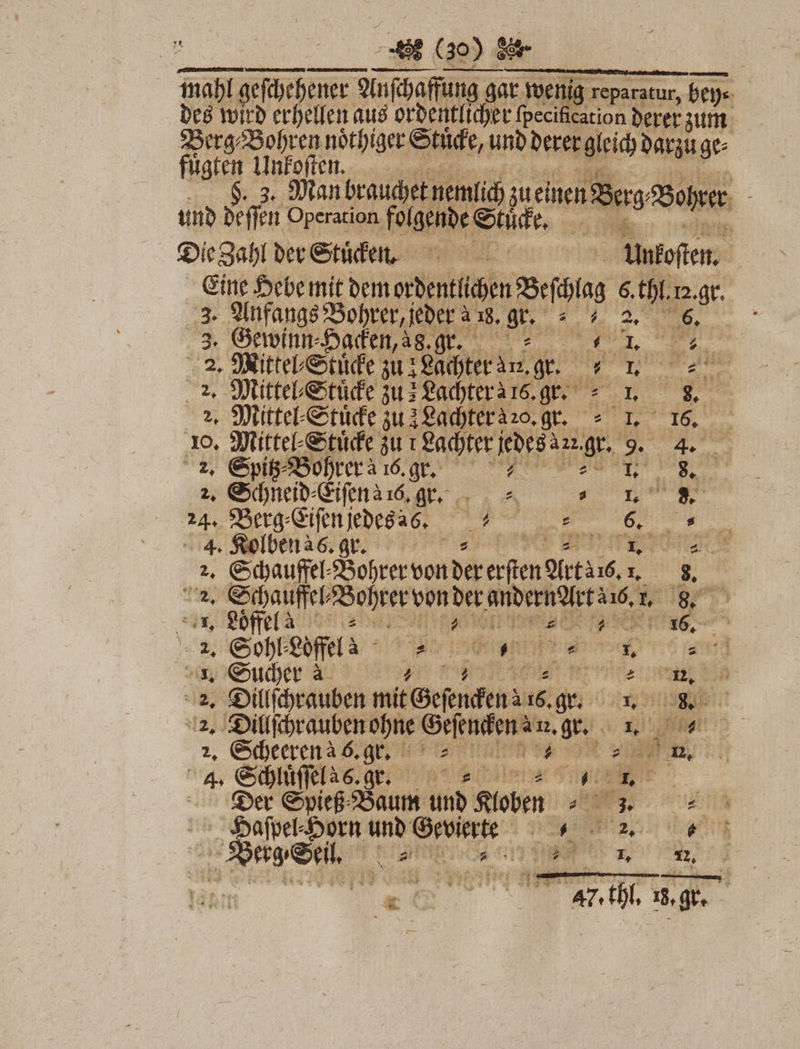 (30)
mahl geſchehener Anſchaffung gar wenig reparatur, bey⸗
des wird erhellen aus ordentlicher ſpecification derer zum
Berg⸗Bohren nöthiger Stücke, und derer gleich darzu ge⸗
fügten Unkoſten.
§. 3. Man brauchet nemlich zu einen Berg⸗Bohrer
und deſſen Operation folgende Stücke.
Die Zahl der Stücken. Unkoſten.
Eine Hebe mit dem ordentlichen Beſchlag 6. thl. 12. gr.
3. Anfangs Bohrer, jeder à 18. gr. ⸗ ⸗ 2. 6.
3. Gewinn⸗Hacken, à 8. gr. ⸗ ⸗ 1. ⸗
2. Mittel⸗Stücke zu Lachter à 12. gr. ⸗ 1. ⸗
2. Mittel⸗Stücke zu Lachter à 16. gr. ⸗ 1. 8.
2. Mittel⸗Stücke zu Lachter à 20. gr. ⸗ 1. 16.
10. Mittel⸗Stücke zu 1 Lachter jedes à 22. gr. 9. 4.
2. Spitz⸗Bohrer à 16. gr. ⸗ ⸗ 1. 8.
2. Schneid⸗Eiſen à 16. gr. ⸗ ⸗ 1. 8.
24. Berg⸗Eiſen jedes à 6. ⸗ ⸗ 6. ⸗
4. Kolben à 6. gr. ⸗ ⸗ 1. ⸗
2. Schauffel⸗Bohrer von der erſten Art à 16. 1. 8.
2. Schauffel⸗Bohrer von der andern Art à 16. 1. 8.
1. Löffel à ⸗ ⸗ ⸗ ⸗ 16.
2. Sohl⸗Löffel à ⸗ ⸗ ⸗ 1. ⸗
1. Sucher à ⸗ ⸗ ⸗ ⸗ 12.
2. Dillſchrauben mit Geſencken à 16. gr. 1. 8.
2. Dillſchrauben ohne Geſencken à 12. gr. 1. ⸗
2. Scheeren à 6. gr. ⸗ ⸗ ⸗ 12.
4. Schlüſſel à 6. gr. ⸗ ⸗ ⸗ 1.
Der Spieß⸗Baum und Kloben ⸗ 3. ⸗
Haſpel⸗Horn und Gevierte ⸗ 2. ⸗
Berg⸗Seil. ⸗ ⸗ ⸗ 1. 12.
47. thl. 18. gr.